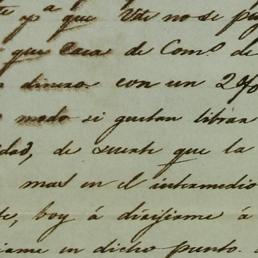 te a
qp que Vste no se pu
que casa de Com.s de
dinero con un 2 %
modo si gustan libran
idad, de suerte que la
mas en el intermedio
te, hoy á dirijirme á
iame en dicho punto.